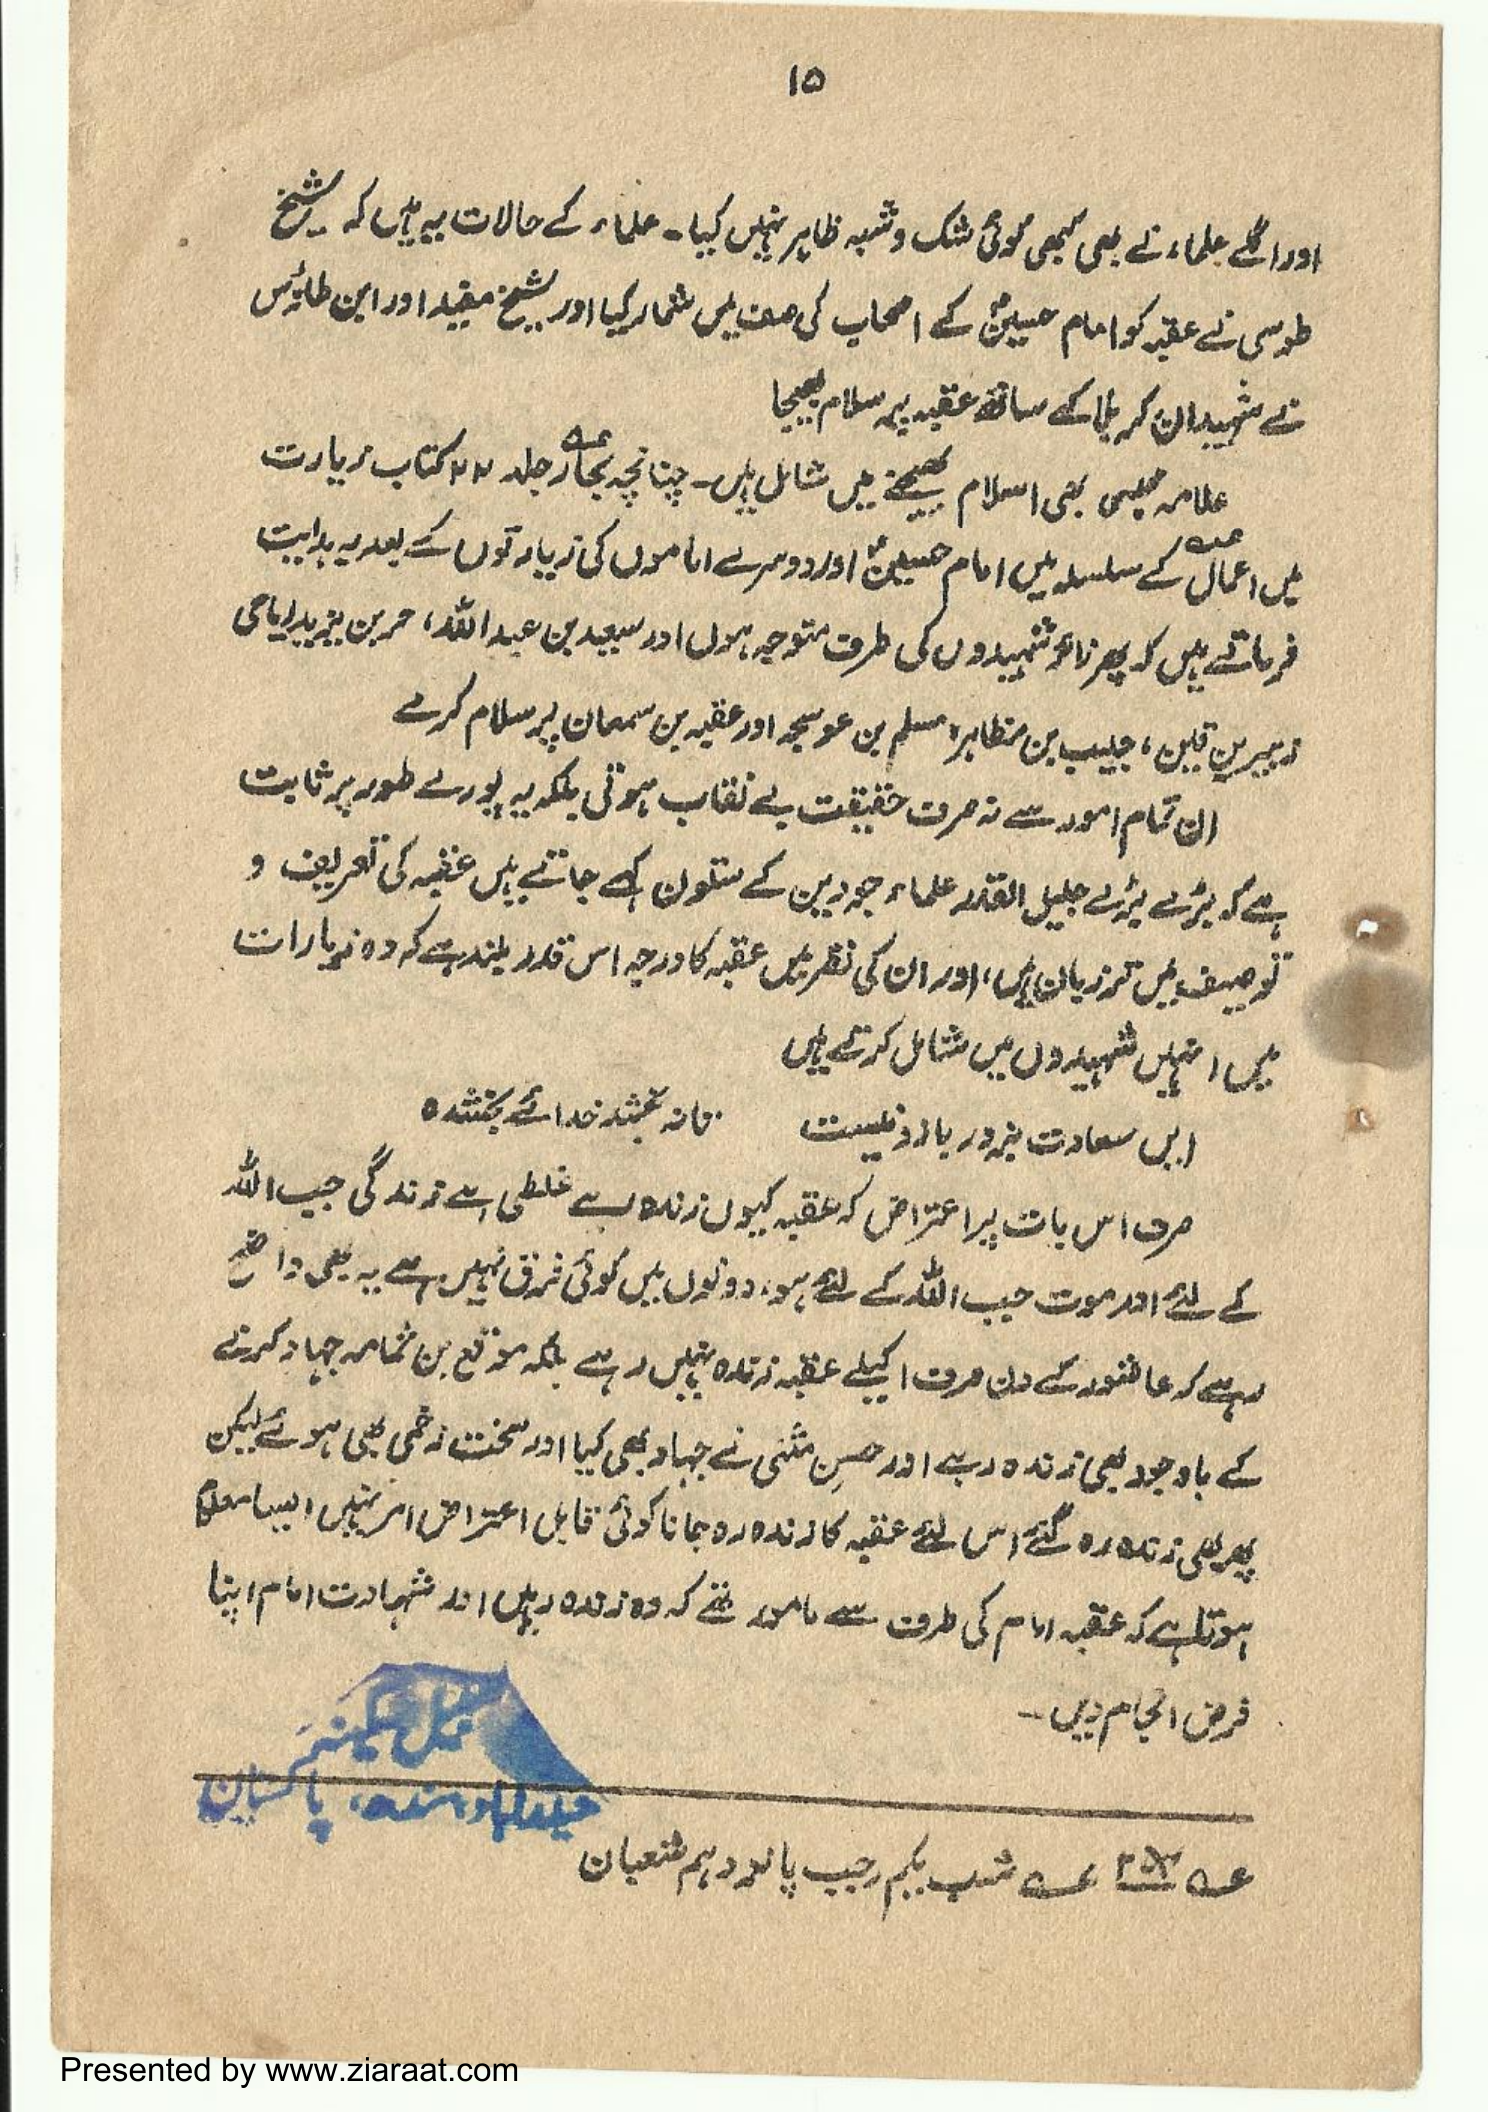 ۱۵
اور اگلے علماء نے بھی کبھی کوئی شک و شبہ ظاہر نہیں کیا۔ علماء کے حالات یہ ہیں کہ شیخ
طوسی نے عقبہ کو امام حسینؑ کے اصحاب کی صف میں شمار کیا اور شیخ مفید اور ابن طاؤس
نے شہیدان کربلا کے ساتھ عقبہ پہ سلام بھیجا
علامہ مجلسی بھی اسلام بھیجنے میں شامل ہیں۔ چنانچہ بحار جلد ۲۲ کتاب زیارت
میں اعمال کے سلسلہ میں امام حسینؑ اور دوسرے اماموں کی زیارتوں کے بعد یہ ہدایت
فرماتے ہیں کہ پھر زائر شہیدوں کی طرف متوجہ ہوں اور سعید بن عبداللہ، حر بن یزید ریاحی
زہیر بن قین، حبیب بن مظاہر، مسلم بن عوسجہ اور عقبہ بن سمعان پر سلام کرے
ان تمام امور سے نہ صرف حقیقت بے نقاب ہوتی بلکہ یہ پورے طور پر ثابت
ہے کہ بڑے بڑے جلیل القدر علماء جو دین کے ستون کہے جاتے ہیں عقبہ کی تعریف و
توصیف میں تر زبان ہیں، اور ان کی نظر میں عقبہ کا درجہ اس قدر بلند ہے کہ وہ زیارات
میں انہیں شہیدوں میں شامل کرتے ہیں
ایں سعادت بزور بازو نیست تا نہ بخشد خدائے بخشندہ
صرف اس بات پر اعتراض کہ عقبہ کیوں زندہ رہے غلطی ہے زندگی جب اللہ
کے لئے اور موت جب اللہ کے لئے ہو، دونوں میں کوئی فرق نہیں ہے یہ بھی واضح
رہے کہ عاشور کے دن صرف اکیلے عقبہ زندہ نہیں رہے بلکہ موقع بن ثمامہ جہاد کرنے
کے باوجود بھی زندہ رہے اور حسنِ مثنی نے جہاد بھی کیا اور سخت زخمی بھی ہوئے لیکن
پھر بھی زندہ رہ گئے اس لئے عقبہ کا زندہ رہ جانا کوئی قابل اعتراض امر نہیں ایسا معلوم
ہوتا ہے کہ عقبہ امام کی طرف سے مامور تھے کہ وہ زندہ رہیں اور شہادت امام اپنا
فرض انجام دیں۔
حیدرآباد سندھ، پاکستان
شب یکم رجب پانزدہم شعبان
Presented by www.ziaraat.com